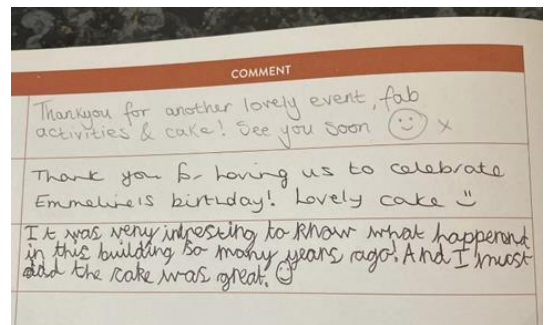 COMMENT
Thankyou for another lovely event, fab
activities & cake! See you soon ☺ x
Thank you for having us to celebrate
Emmeline's birthday! Lovely cake ☺
It was very intresting to know what happernd
in this building so many years ago! And I must
add the cake was great! ☺